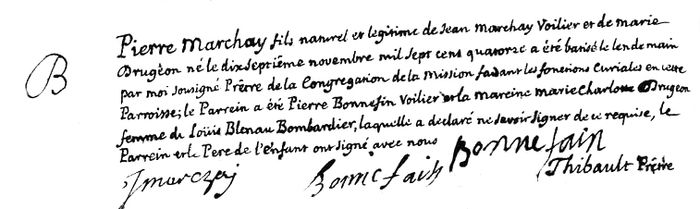 B
Pierre Marchay fils naturel et legitime de Jean Marchay Voilier et de marie
Drugeon né le dix septiéme novembre mil sept cens quatorze a été batisé le lendemain
par moi sousigné Prêtre de la Congregation de la Mission faisant les fonctions Curiales en cette
Parroisse; le Parrein a été Pierre Bonnefin Voilier et la mareine marie Charlotte Drugeon
femme de Loüis Blenau Bombardier, laquelle a declaré ne savoir signer de ce requise, le
Parrein et le Pere de l'enfant ont signé avec nous
Jmarchaj Bonnefain Bonnefain
Thibault Prêtre